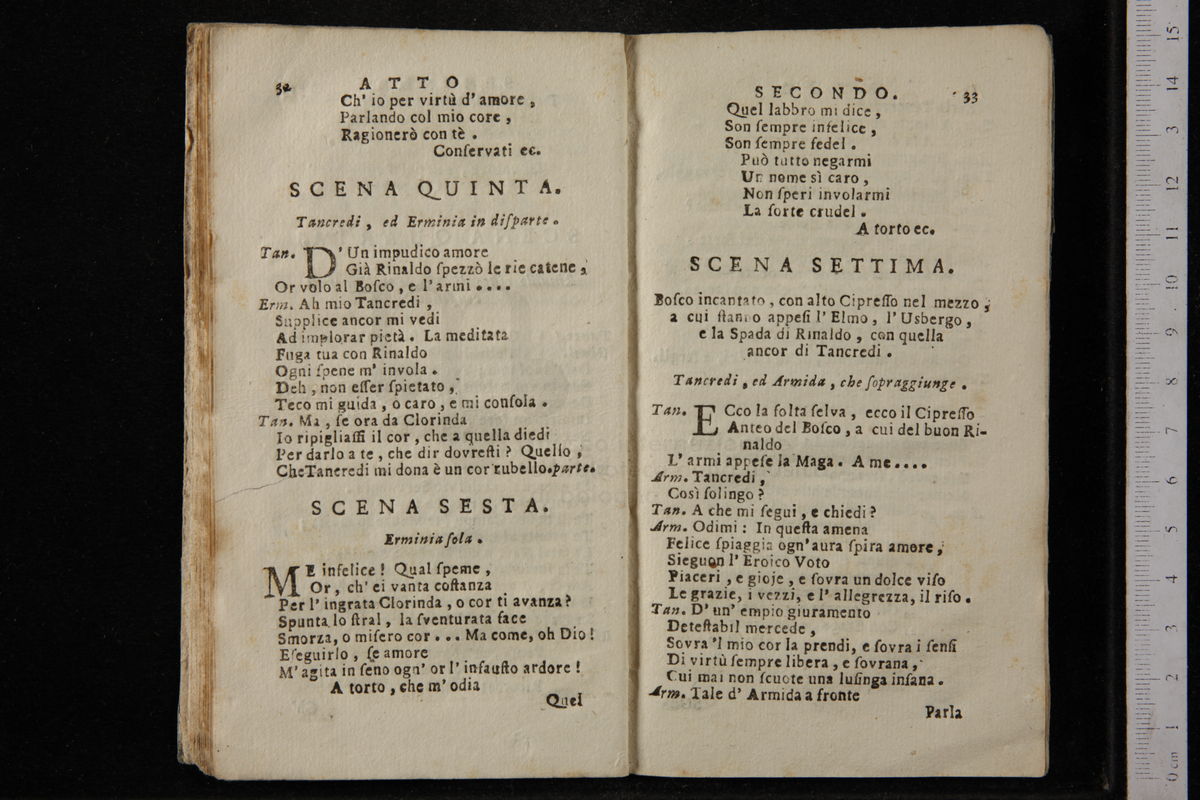 32
ATTO
Ch' io per virtù d' amore,
Parlando col mio core,
Ragionerò con tè.
Conſervati ec.
SCENA QUINTA.
Tancredi, ed Erminia in diſparte.
Tan. D' Un impudico amore
Già Rinaldo ſpezzò le rie catene,
Or volo al Boſco, e l' armi....
Erm. Ah mio Tancredi,
Supplice ancor mi vedi
Ad implorar pietà. La meditata
Fuga tua con Rinaldo
Ogni ſpene m' invola.
Deh, non eſſer ſpietato,
Teco mi guida, o caro, e mi conſola.
Tan. Ma, ſe ora da Clorinda
Io ripigliaſſi il cor, che a quella diedi
Per darlo a te, che dir dovreſti? Quello,
Che Tancredi mi dona è un cor rubello. parte.
SCENA SESTA.
Erminia ſola.
ME infelice! Qual ſpeme,
Or, ch' ei vanta coſtanza
Per l' ingrata Clorinda, o cor ti avanza?
Spunta lo ſtral, la ſventurata face
Smorza, o miſero cor... Ma come, oh Dio!
Eſeguirlo, ſe amore
M' agita in ſeno ogn' or l' infauſto ardore!
A torto, che m' odia
Quel
SECONDO.
33
Quel labbro mi dice,
Son ſempre infelice,
Son ſempre fedel.
Può tutto negarmi
Un nome sì caro,
Non ſperi involarmi
La ſorte crudel.
A torto ec.
SCENA SETTIMA.
Boſco incantato, con alto Cipreſſo nel mezzo,
a cui ſtanno appeſi l' Elmo, l' Usbergo,
e la Spada di Rinaldo, con quella
ancor di Tancredi.
Tancredi, ed Armida, che ſopraggiunge.
Tan. ECco la folta ſelva, ecco il Cipreſſo
Anteo del Boſco, a cui del buon Ri-
naldo
L' armi appeſe la Maga. A me....
Arm. Tancredi,
Così ſolingo?
Tan. A che mi ſegui, e chiedi?
Arm. Odimi: In queſta amena
Felice ſpiaggia ogn' aura ſpira amore,
Sieguon l' Eroico Voto
Piaceri, e gioje, e ſovra un dolce viſo
Le grazie, i vezzi, e l' allegrezza, il riſo.
Tan. D' un' empio giuramento
Deteſtabil mercede,
Sovra 'l mio cor la prendi, e ſovra i ſenſi
Di virtù ſempre libera, e ſovrana,
Cui mai non ſcuote una luſinga inſana.
Arm. Tale d' Armida a fronte
Parla
0 cm 1 2 3 4 5 6 7 8 9 10 11 12 13 14 15